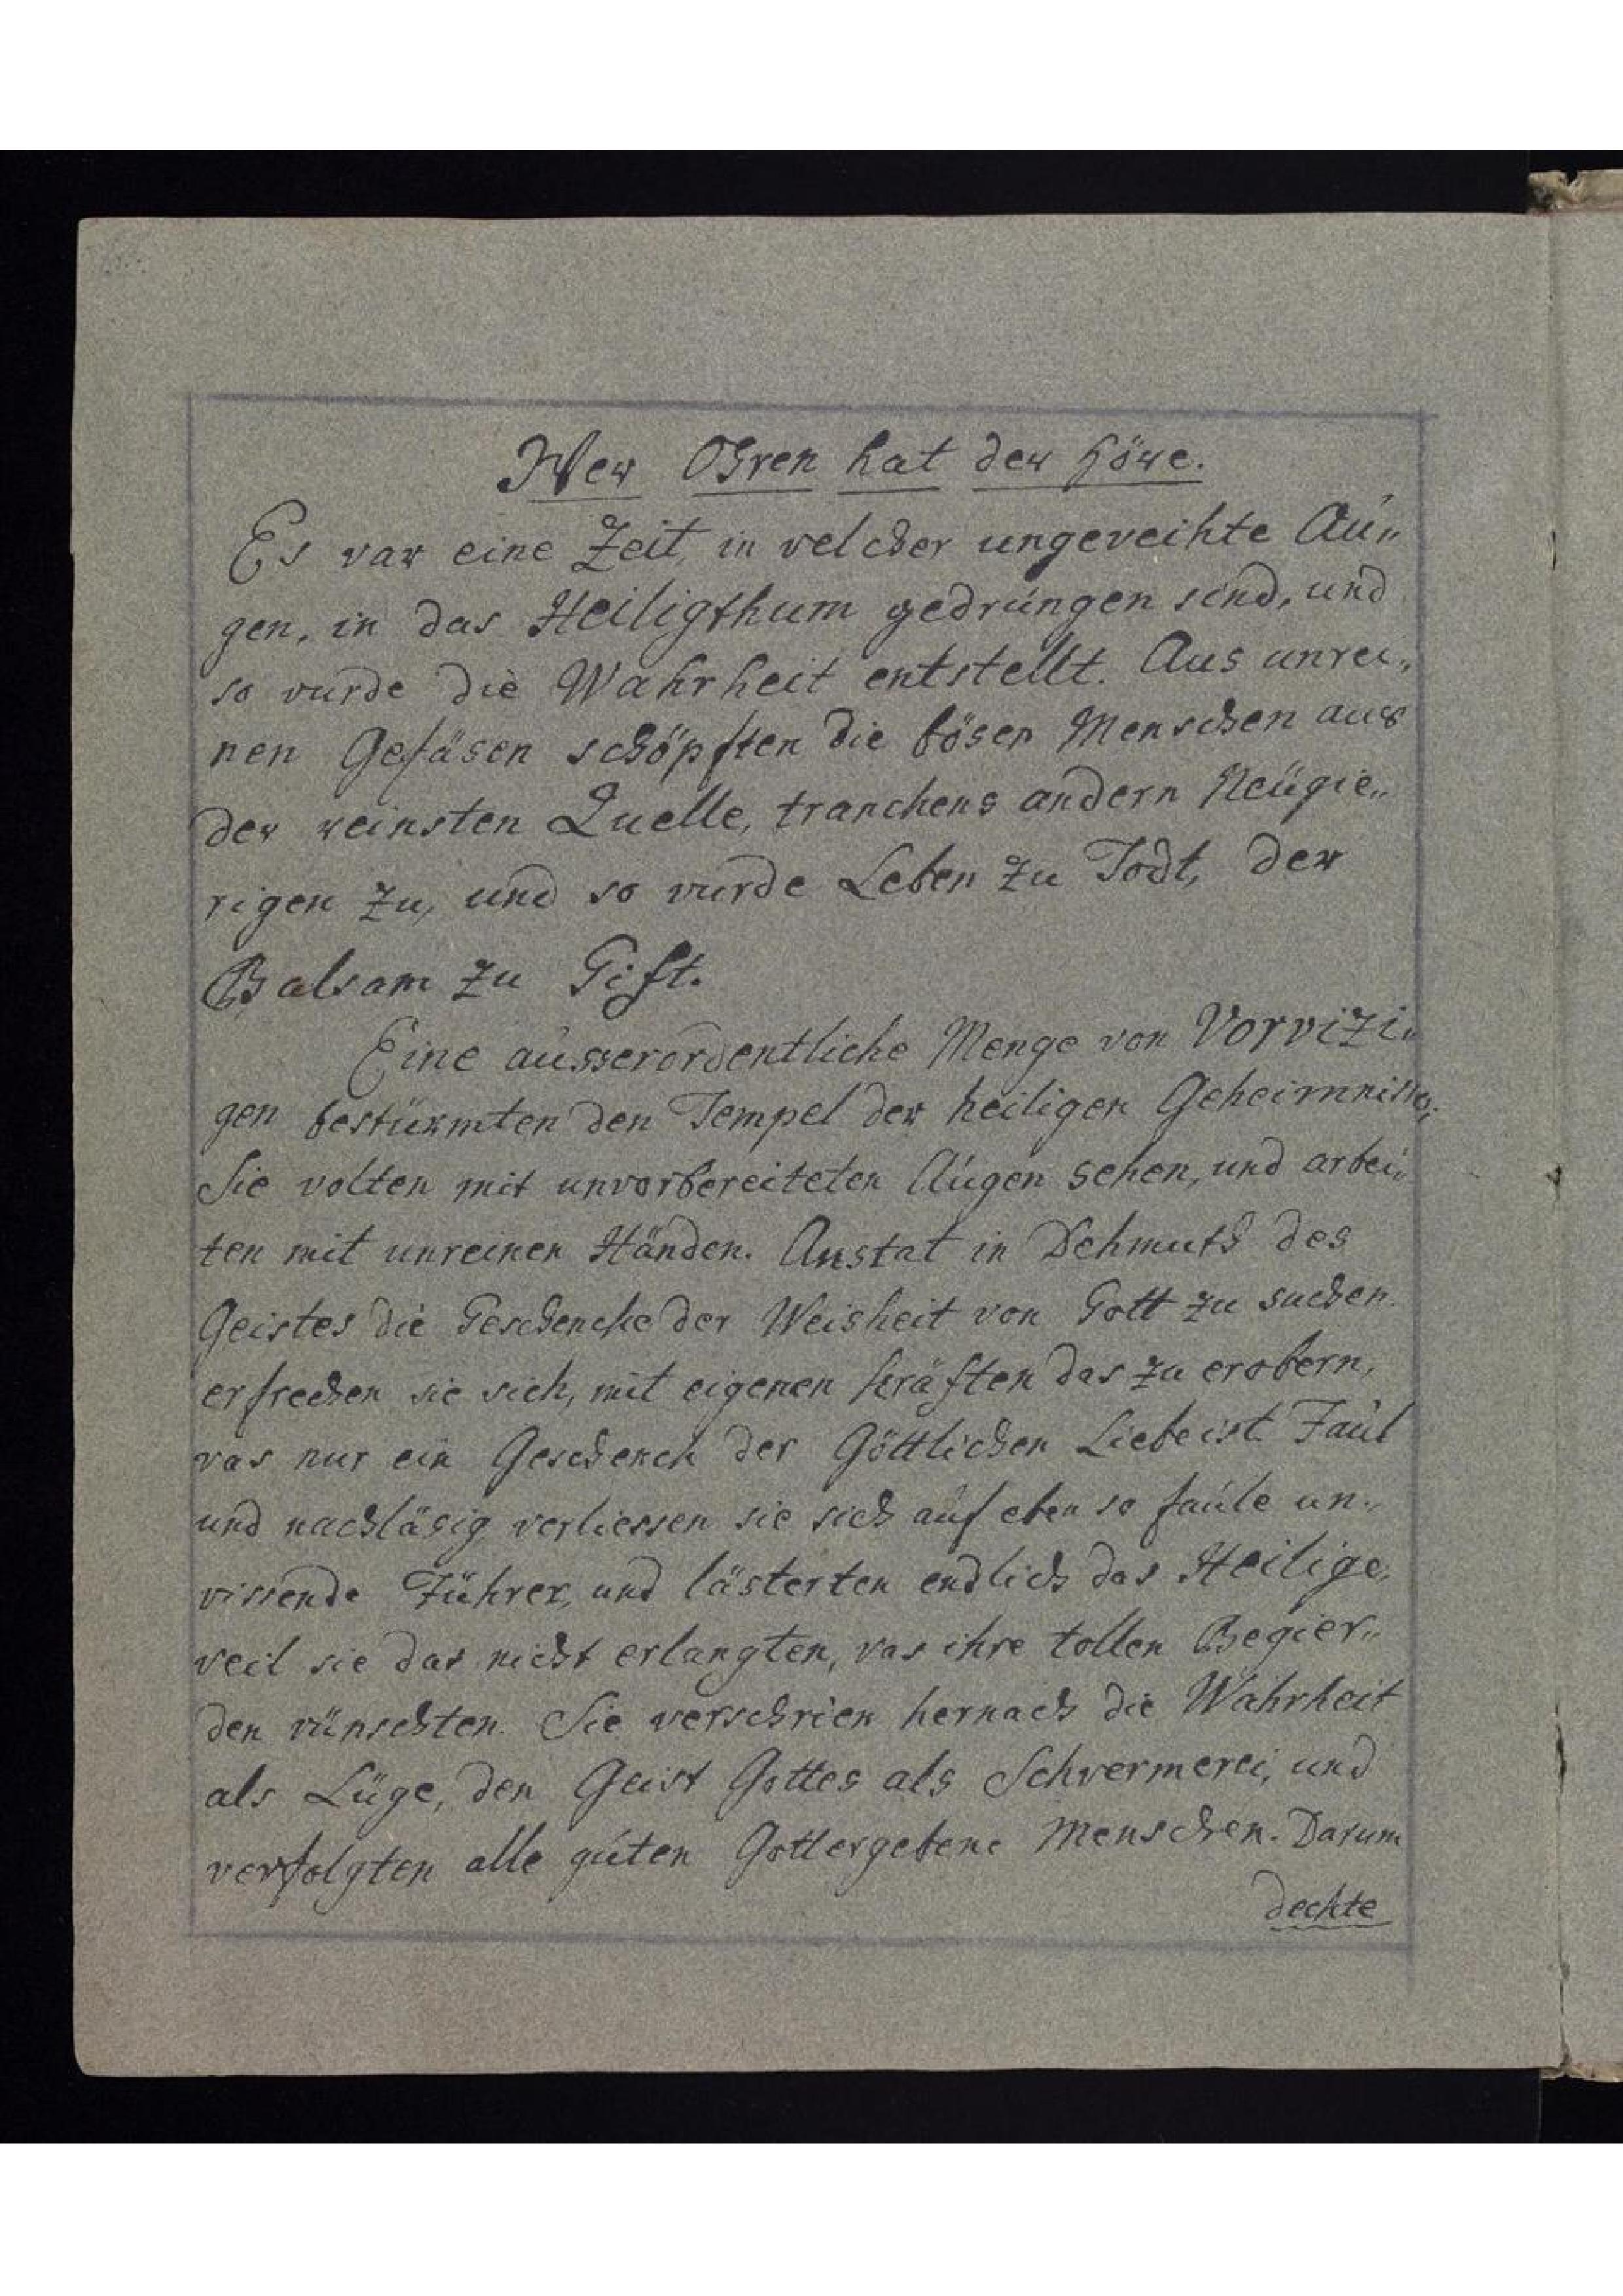 Wer Ohren hat der höre.
Es var eine Zeit, in velcher ungeveihte Au„
gen, in das Heiligthum gedrungen sind, und
so vurde die Wahrheit entstellt. Aus unrei„
nen Gefäsen schöpften die bösen Menschen aus
der reinsten Quelle, tranckens andern Neugie„
rigen zu, und so vurde Leben zu Todt, der
Balsam zu Gift.
Eine ausserordentliche Menge von Vorvizi„
gen bestürmten den Tempel der heiligen Geheimnisse;
Sie volten mit unvorbereiteten Augen sehen, und arbei„
ten mit unreinen Händen. Anstat in Dehmuth des
Geistes die Geschencke der Weisheit von Gott zu suchen
erfrechen sie sich, mit eigenen kräften das zu erobern,
vas nur ein Geschenck der Göttlichen Liebe ist. Faul
und nachläsig verliessen sie sich auf eben so faule un„
vissende Führer, und lästerten endlich das Heilige,
veil sie das nicht erlangten, vas ihre tollen Begier„
den vünschten. Sie verschrien hernach die Wahrheit
als Lüge, den Geist Gottes als Schvermerei, und
verfolgten alle guten Gottergebene Menschen. Darum
deckte